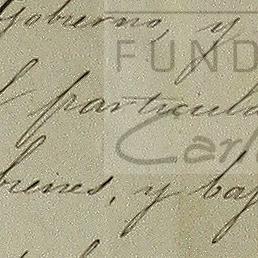 Gobierno, y
FUND
particula
Carl
bienes, y baj